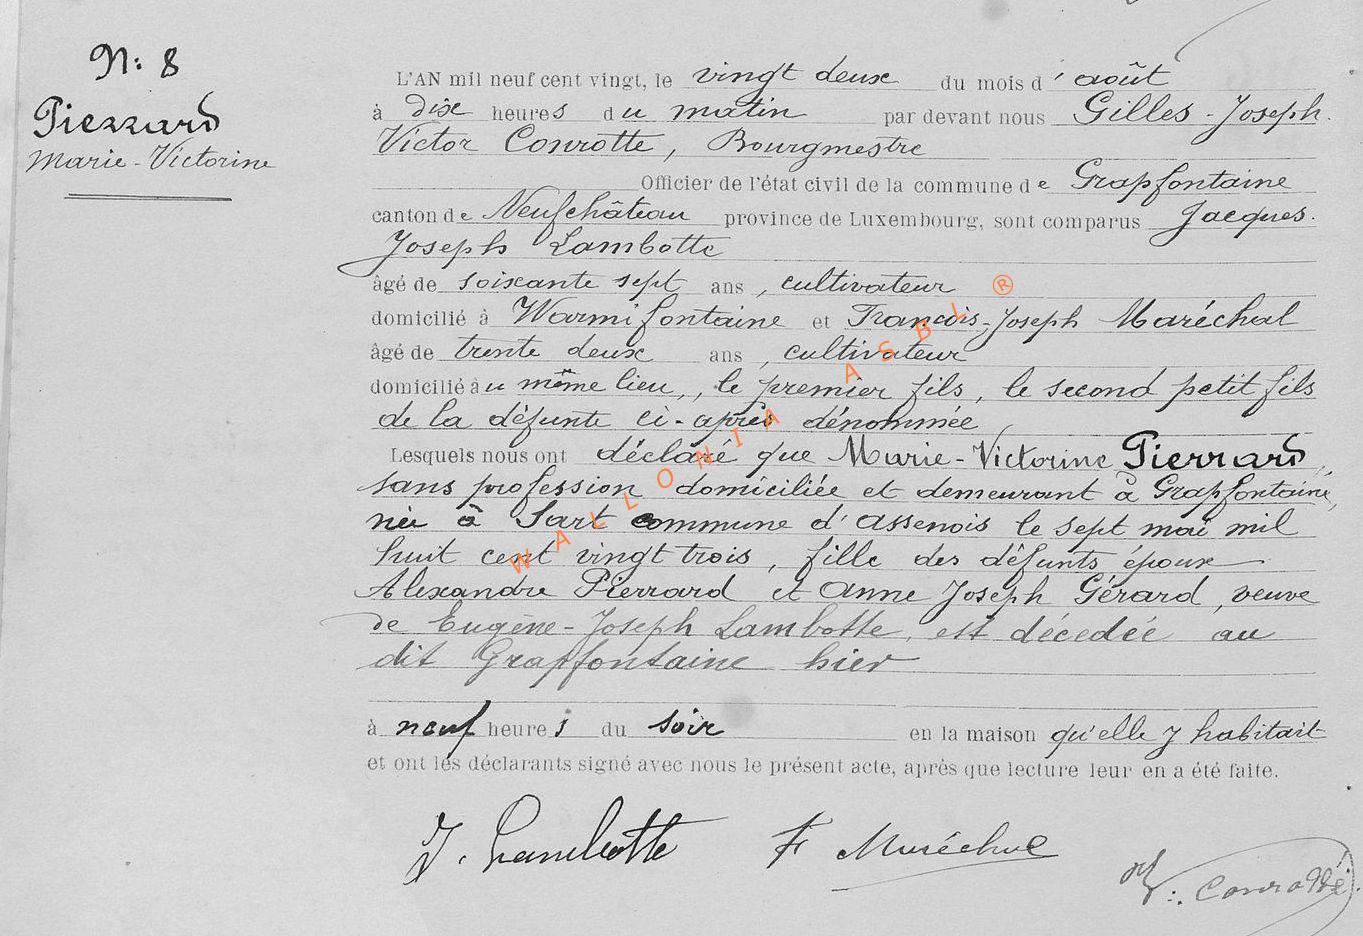 N: 8
Pierrard
Marie-Victorine
L'AN mil neuf cent vingt, le vingt deux du mois d'août
à dix heures du matin par devant nous Gilles-Joseph-
Victor Conrotte, Bourgmestre
Officier de l'état civil de la commune de Grapfontaine
canton de Neufchâteau province de Luxembourg, sont comparus Jacques-
Joseph Lambotte
âgé de soixante sept ans, cultivateur
domicilié à Warmifontaine et François-Joseph Maréchal
âgé de trente deux ans, cultivateur
domicilié au même lieu, le premier fils, le second petit fils
de la défunte ci-après dénommée
Lesquels nous ont déclaré que Marie-Victorine Pierrard,
sans profession domiciliée et demeurant à Grapfontaine,
née à Sart commune d'Assenois le sept mai mil
huit cent vingt trois, fille des défunts époux
Alexandre Pierrard et Anne Joseph Gérard, veuve
de Eugène-Joseph Lambotte, est décedée au
dit Grapfontaine hier
à neuf heures du soir en la maison qu'elle y habitait
et ont les déclarants signé avec nous le présent acte, après que lecture leur en a été faite.
J. Lambotte F Maréchal
V. Conrotte
WALLONIA ASBL ®